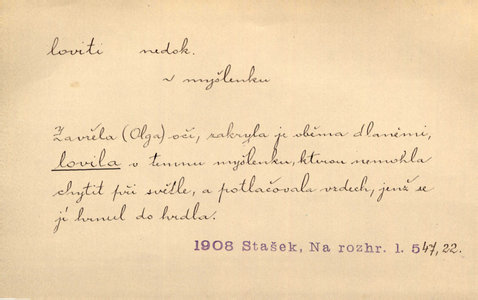 loviti nedok.
~ myšlenku
Zavřela (Olga) oči, zakryla je oběma dlaněmi,
lovila v temnu myšlenku, kterou nemohla
chytit při světle, a potlačovala vzdech, jenž se
jí hrnul do hrdla.
1908 Stašek, Na rozhr. 1. 547, 22.